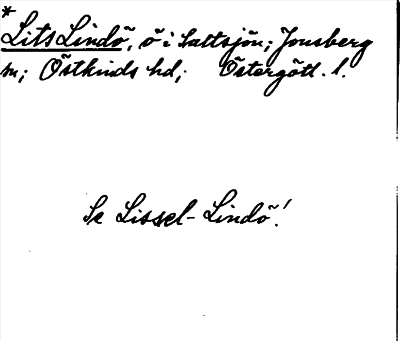 *
Lits Lindö, ö i Saltsjön; Jonsberg
sn; Östkinds hd; Östergötl. l.
Se Lissel-Lindö!